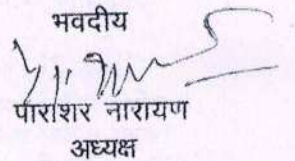 भवदीय
पाराशर नारायण
अध्यक्ष